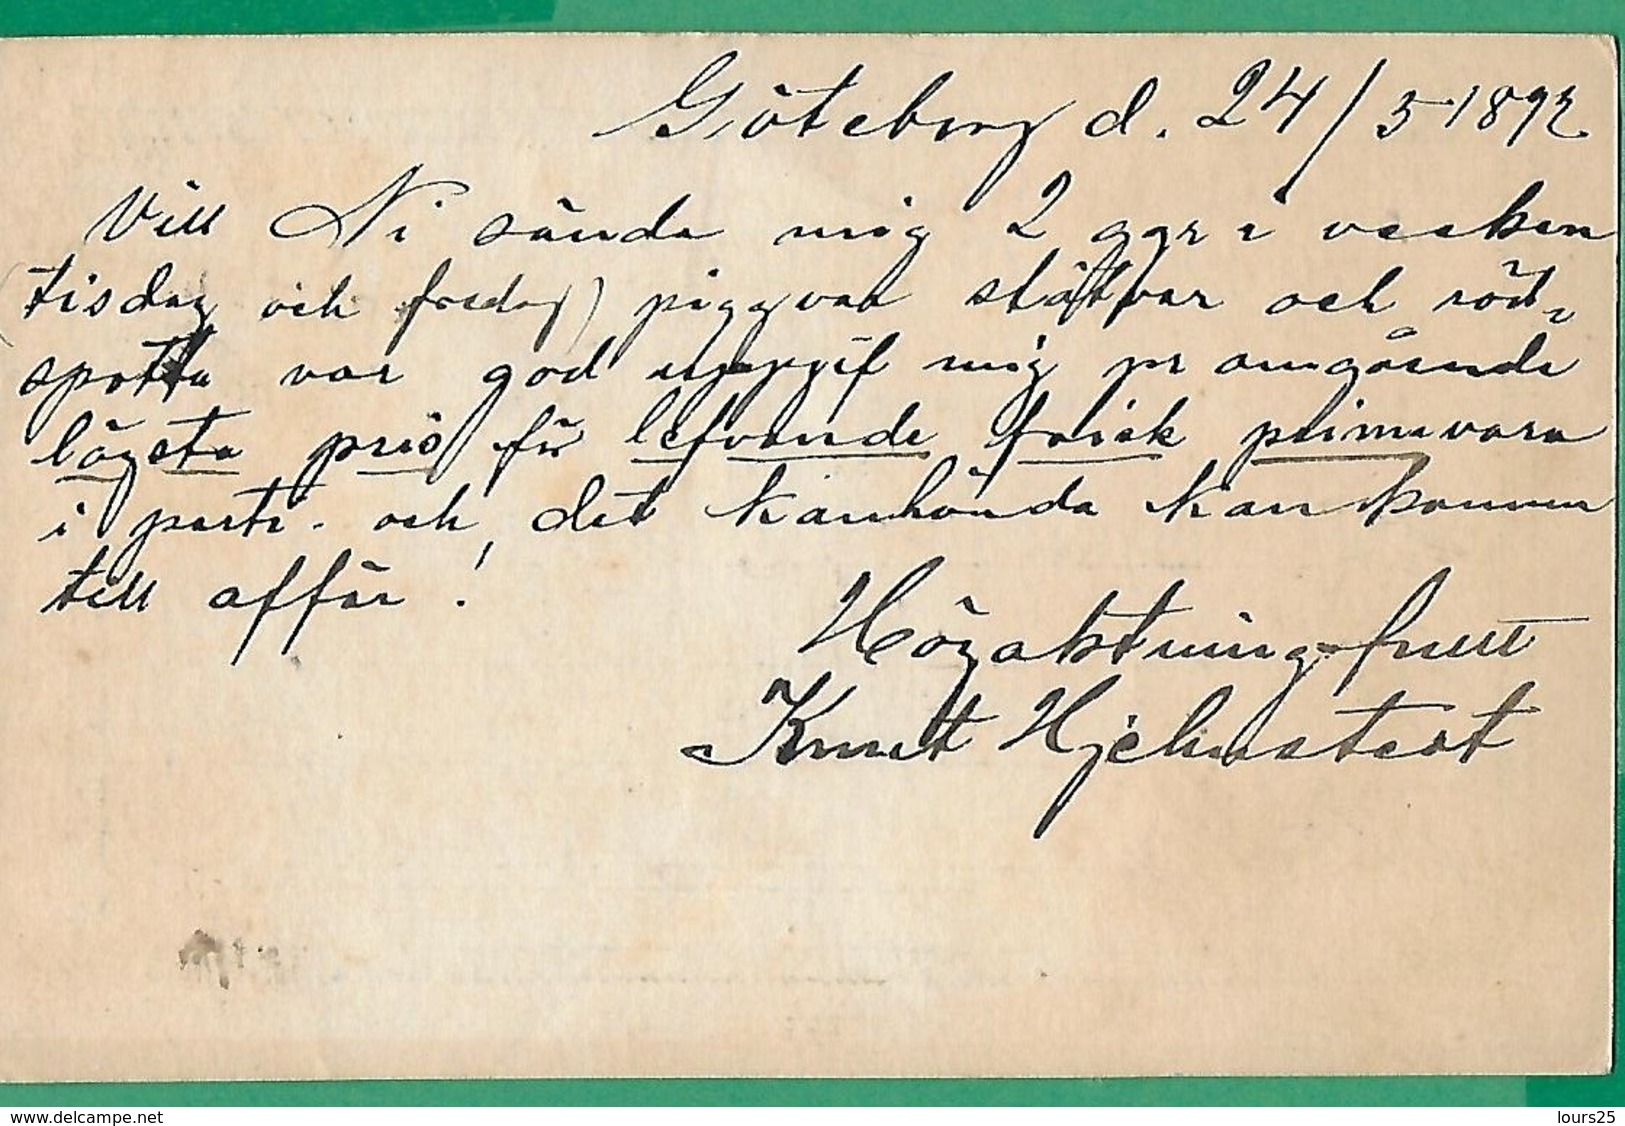 Göteborg d. 24/5 1892.
Vill Ni sända mig 2 ggr i veckan
(tisdag och fredag) piggvar slätvar och röd-
spotta var god uppgif mig pr omgående
lägsta pris för lefvande frisk prima vara
i parti. och det kanhända kan komma
till affär!
Högaktningsfullt
Knut Hjelmstedt
delcampe.net
lours25